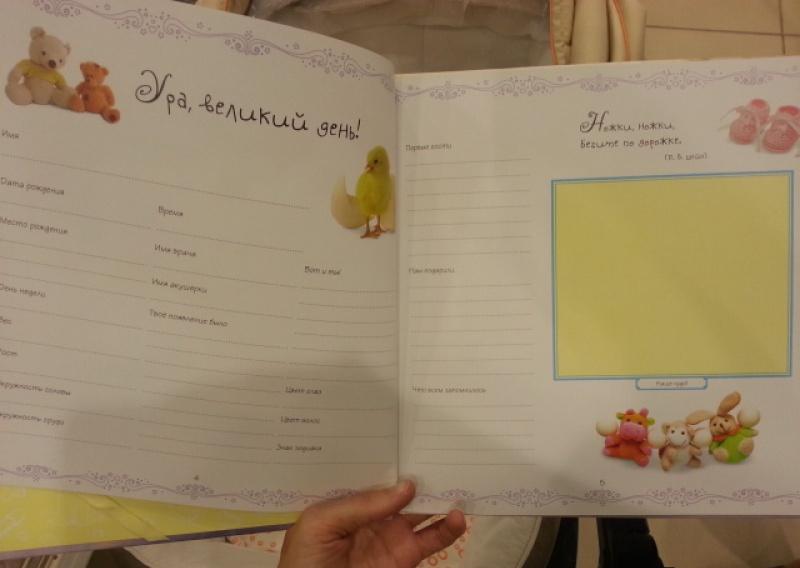 Ура, великий день!
Имя
Дата рождения
Время
Место рождения
Имя врача
Вот и ты!
День недели
Имя акушерки
Вес
Твое появление было
Рост
Окружность головы
Цвет глаз
Окружность груди
Цвет волос
Знак зодиака
4
Ножки, ножки,
Бегите по дорожке.
Первые гости
Нам подарили
Чем всем запомнилось
5